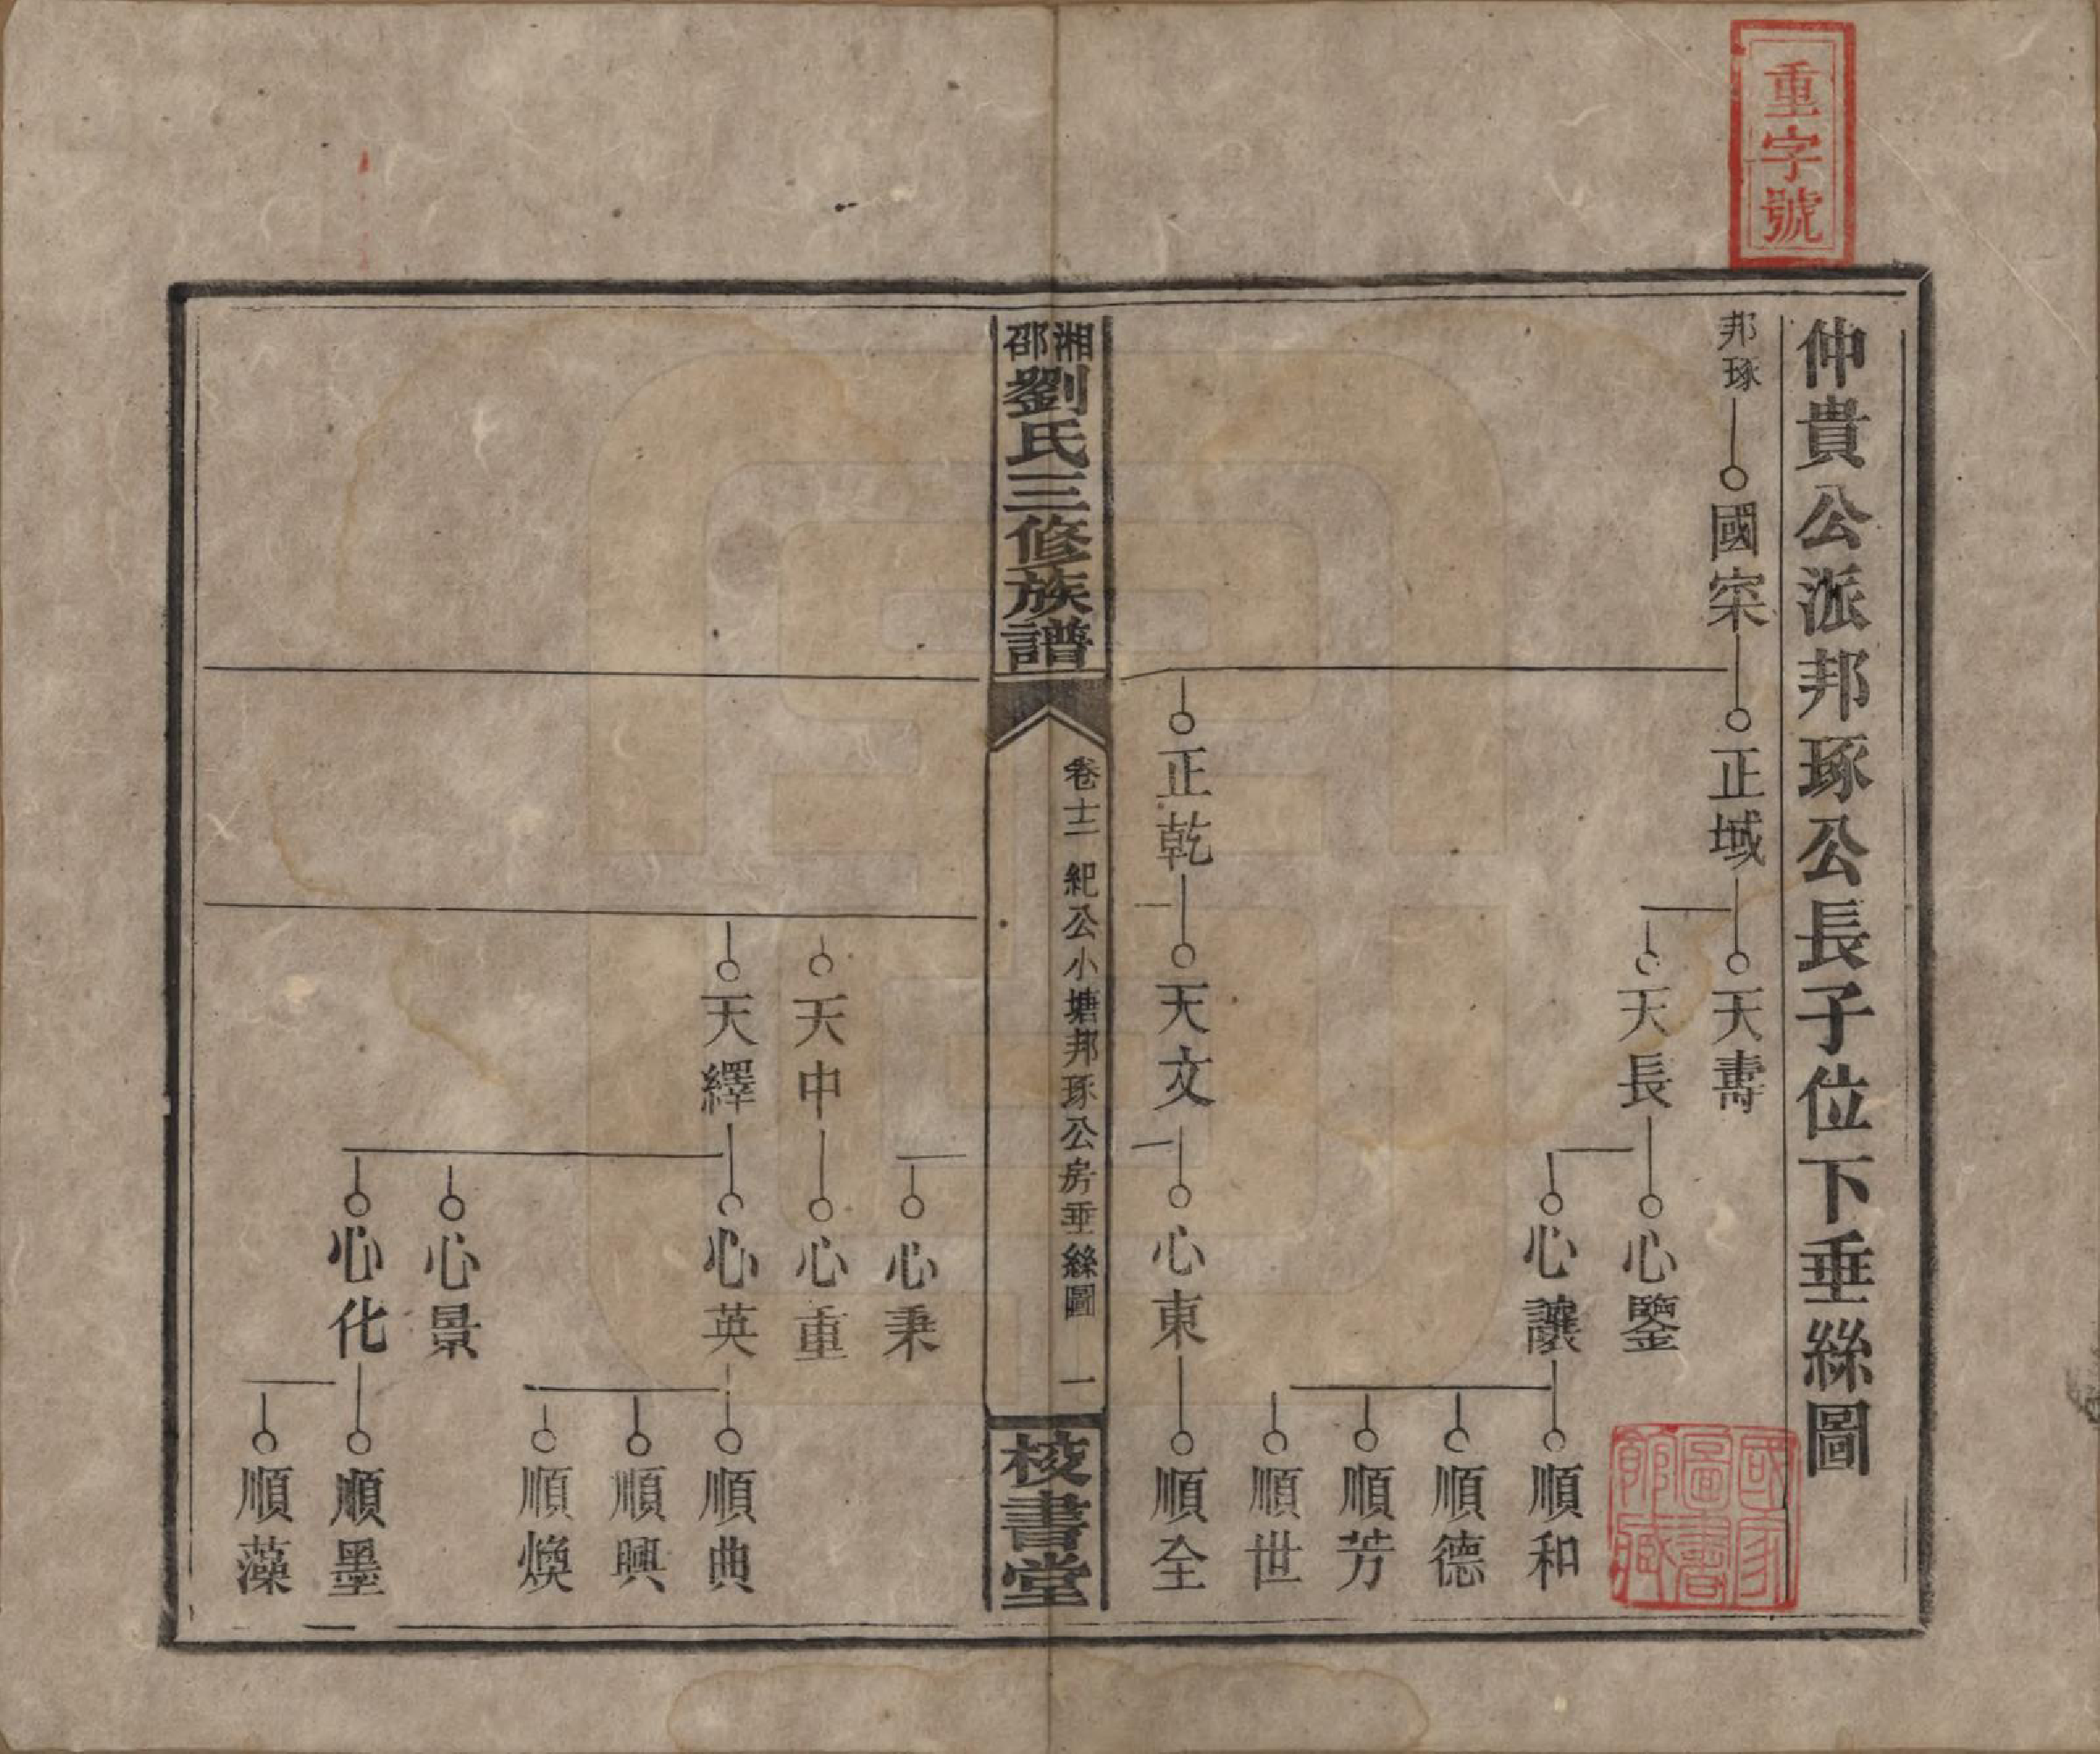 重字號
仲貴公派邦琢公長子位下垂絲圖
邦琢
國寀
正域
天壽
天長
心鑒
心讓
順和
順德
順芳
順世
正乾
天文
心東
順全
湘邵劉氏三修族譜
卷十二 紀公小塘邦琢公房垂絲圖 一
校書堂
心秉
天中
心重
天繹
心英
順典
順興
順煥
心景
心化
順墨
順藻
國家圖書館藏